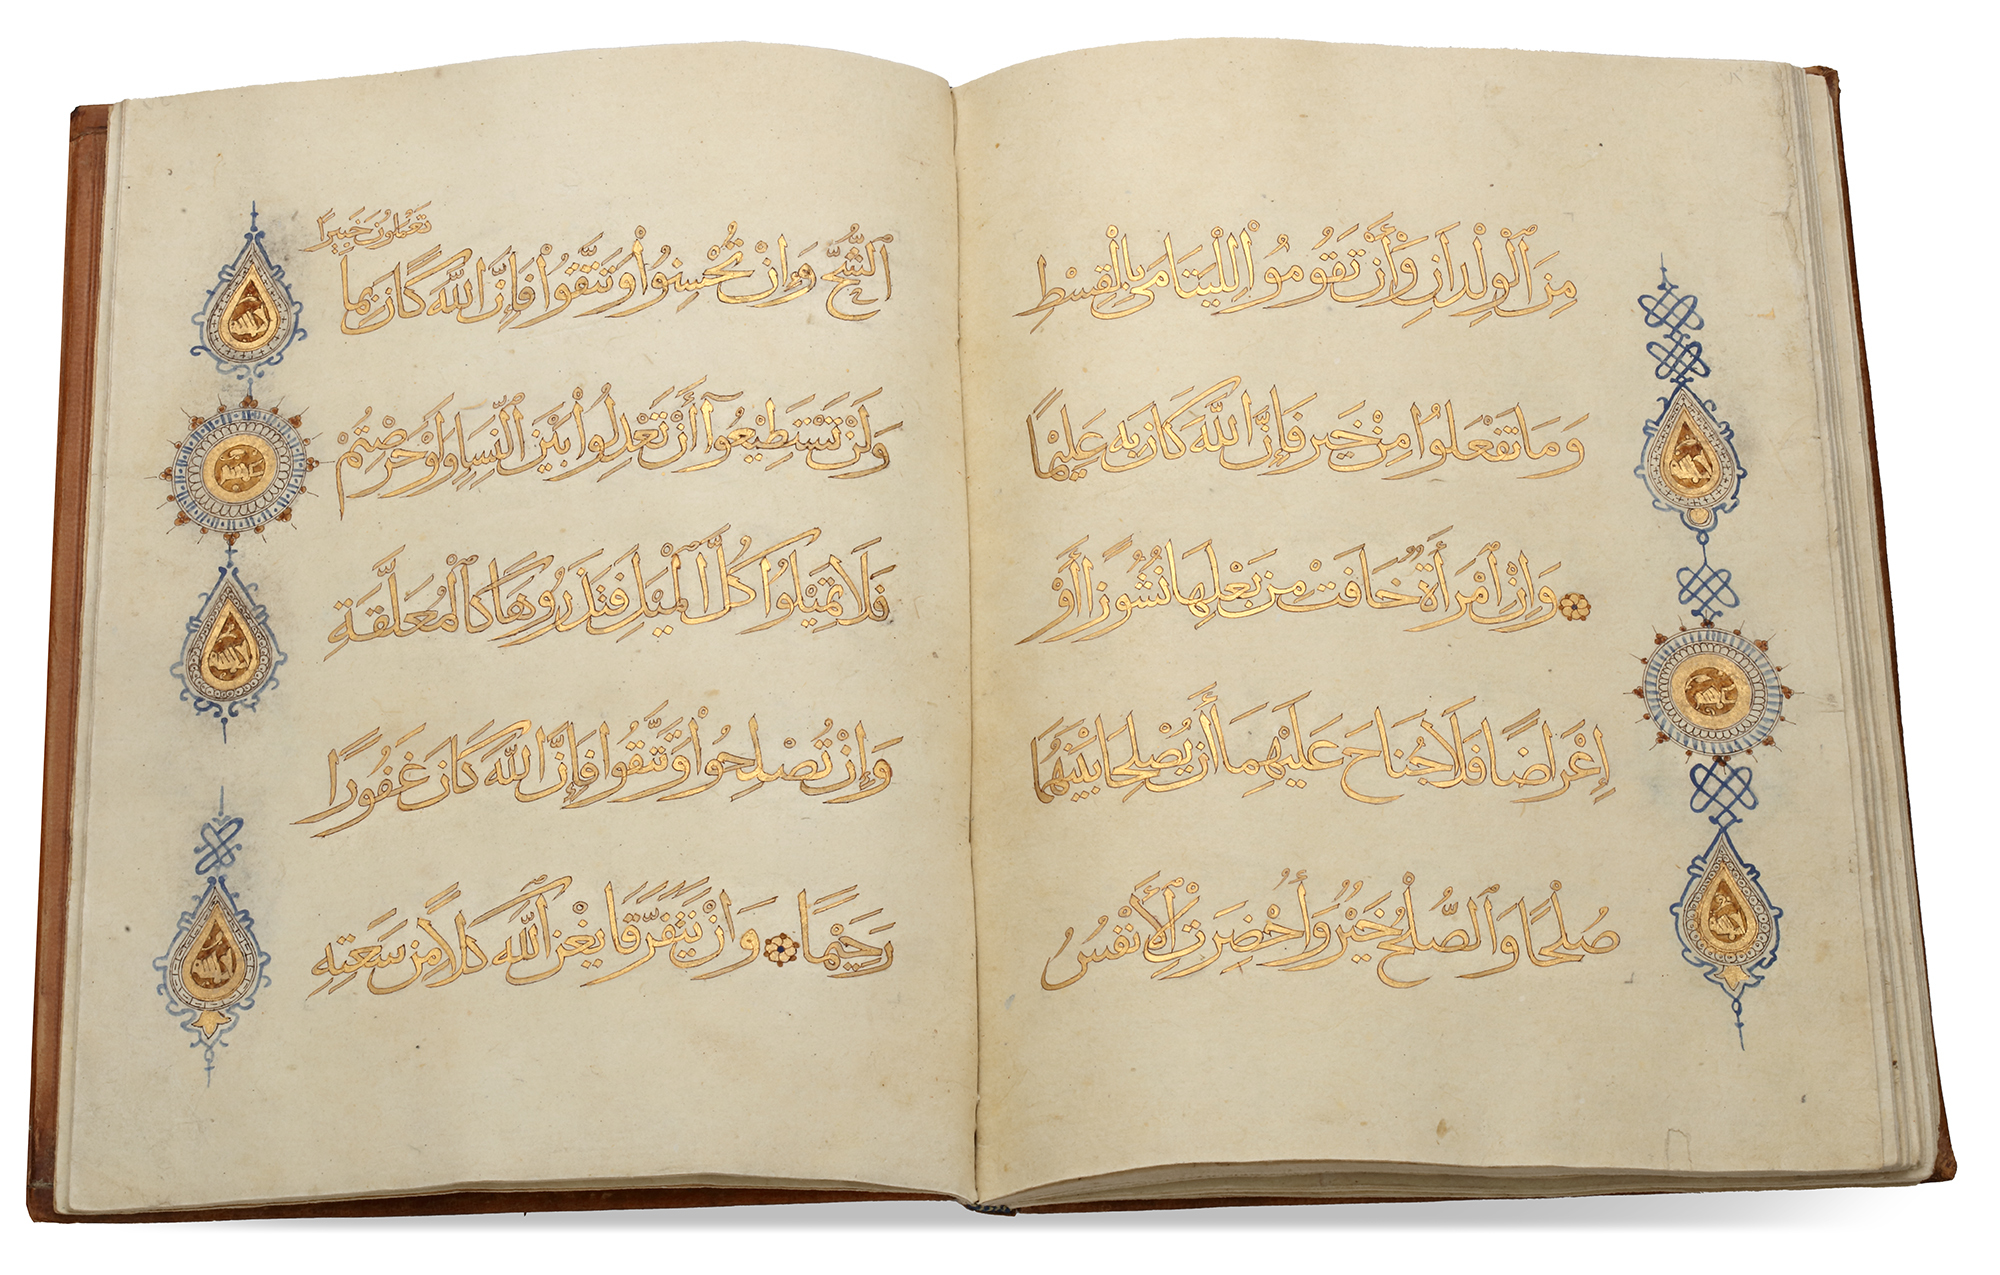 مِنَ ٱلْوِلْدَانِ وَأَنْ تَقُومُوا لِلْيَتَامَى بِالْقِسْطِ
وَمَا تَفْعَلُوا مِنْ خَيْرٍ فَإِنَّ اللَّهَ كَانَ بِهِ عَلِيمًا
وَإِنِ ٱمْرَأَةٌ خَافَتْ مِن بَعْلِهَا نُشُوزًا أَوْ
إِعْرَاضًا فَلَا جُنَاحَ عَلَيْهِمَا أَن يُصْلِحَا بَيْنَهُمَا
صُلْحًا وَٱلصُّلْحُ خَيْرٌ وَأُحْضِرَتِ ٱلْأَنْفُسُ
ٱلشُّحَّ وَإِنْ تُحْسِنُوا وَتَتَّقُوا فَإِنَّ اللَّهَ كَانَ بِمَا
تَعْمَلُونَ خَبِيرًا
وَلَنْ تَسْتَطِيعُوٓا أَنْ تَعْدِلُوا بَيْنَ ٱلنِّسَاءِ وَلَوْ حَرَصْتُمْ
فَلَا تَمِيلُوا كُلَّ ٱلْمَيْلِ فَتَذَرُوهَا كَٱلْمُعَلَّقَةِ
وَإِنْ تُصْلِحُوا وَتَتَّقُوا فَإِنَّ اللَّهَ كَانَ غَفُورًا
رَحِيمًا وَإِنْ يَتَفَرَّقَا يُغْنِ ٱللَّهُ كُلًّا مِنْ سَعَتِهِ